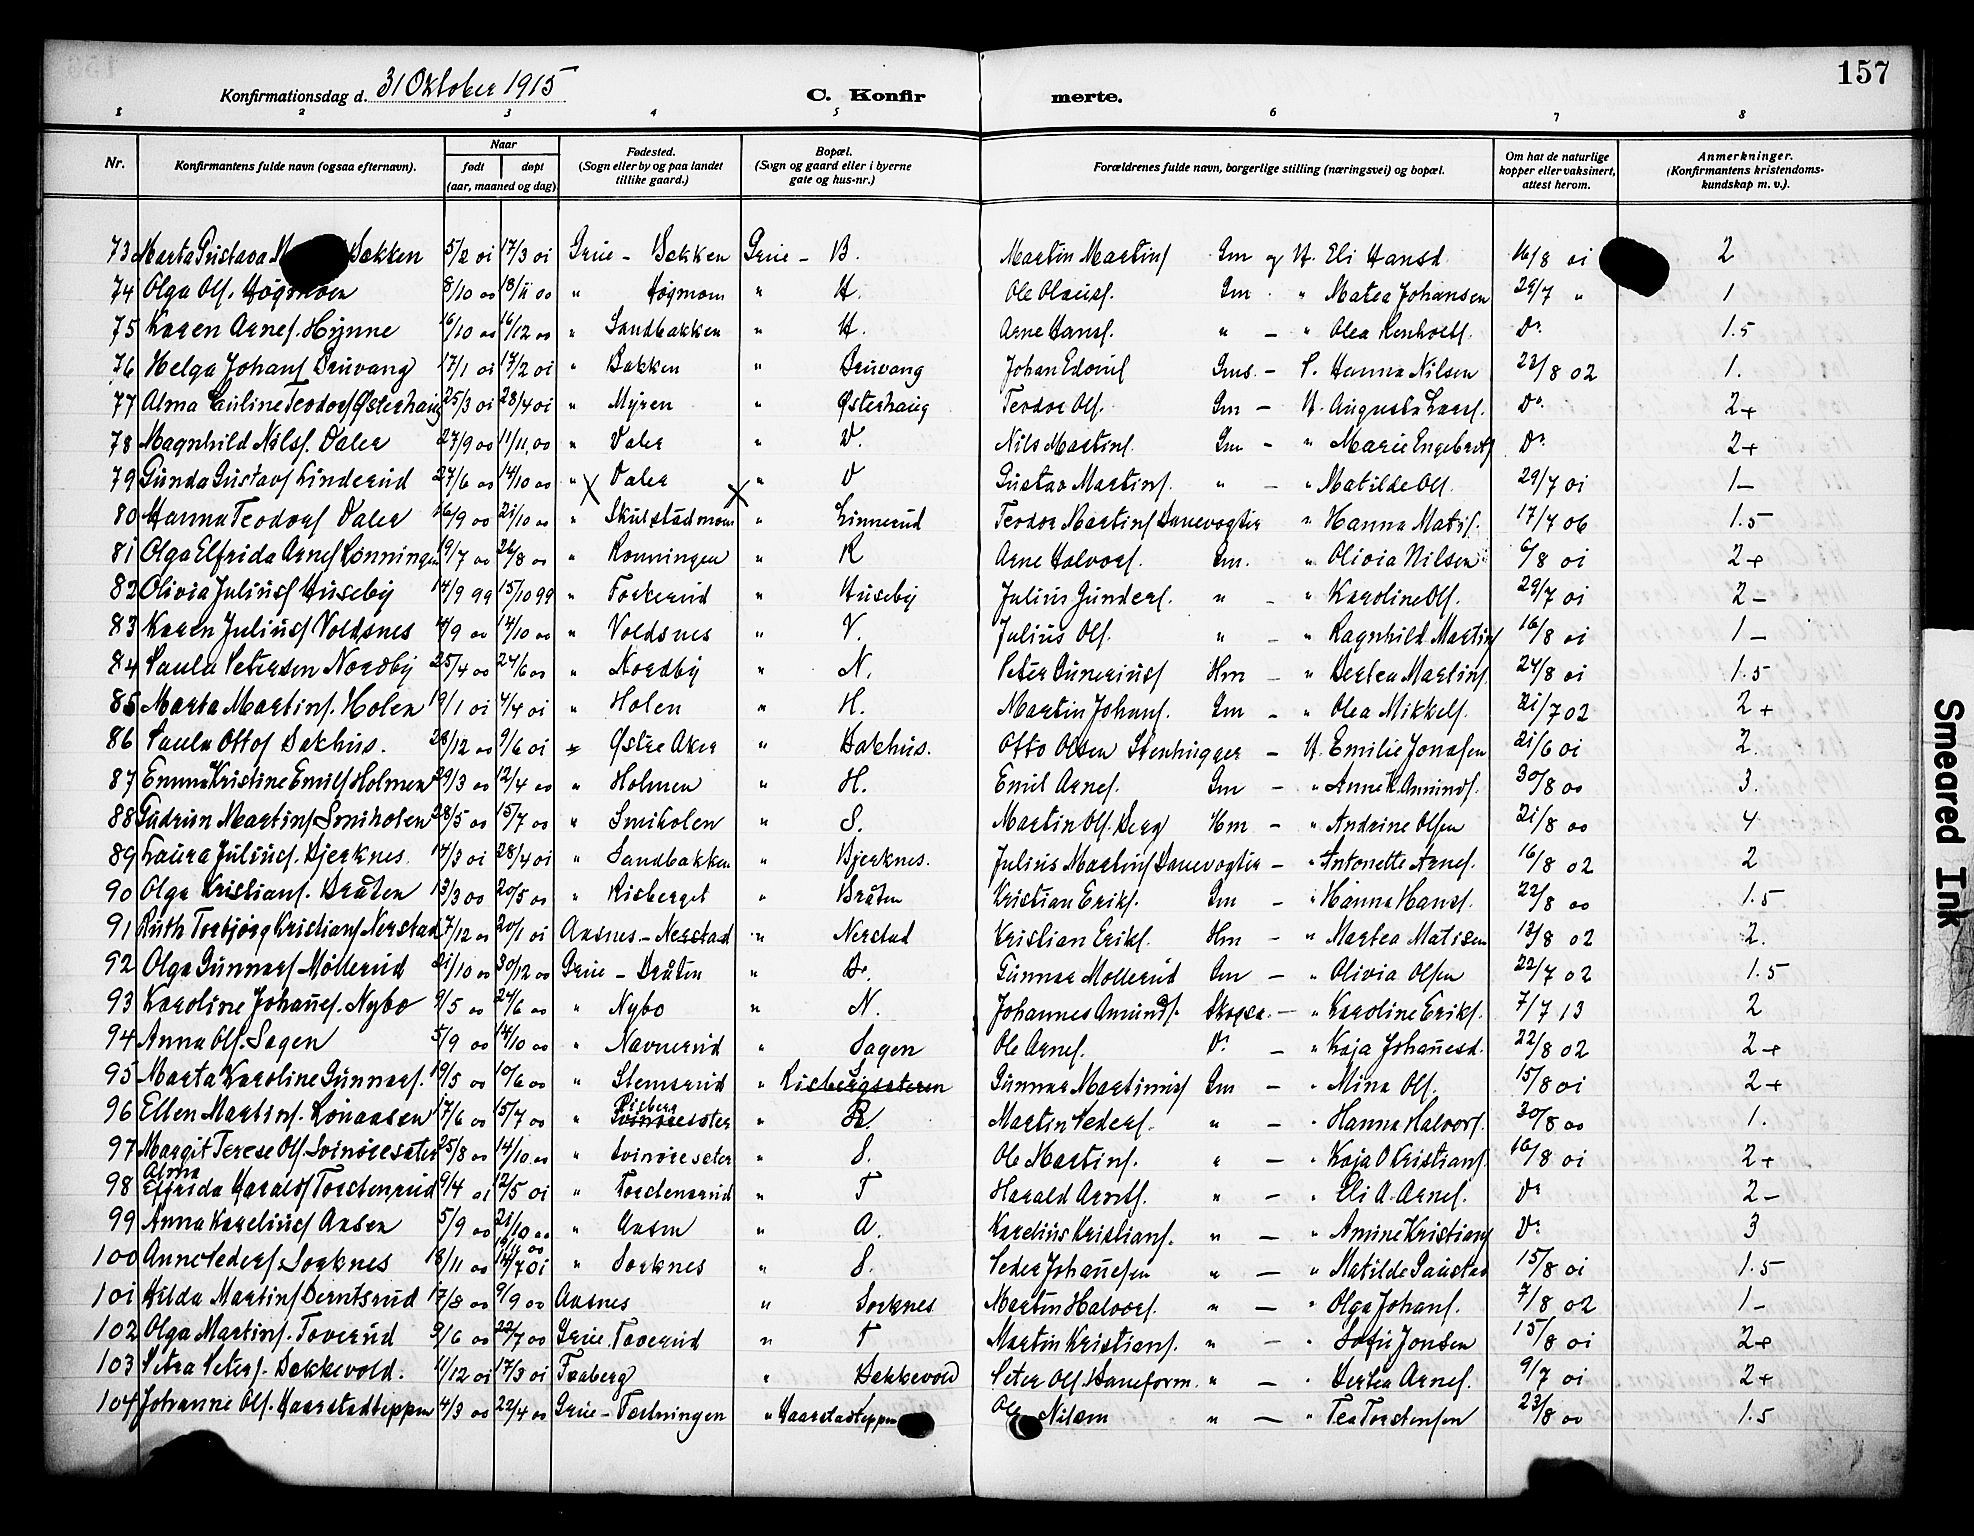 157
Konfirmationsdag d. 31 Oktober 1915 C. Konfirmerte.
1 2 3 4 5 6 7 8
Nr. Konfirmantens fulde navn (ogsaa efternavn). Naar født døpt (aar, maaned og dag) Fødested. (Sogn eller by og paa landet tillike gaard.) Bopæl. (Sogn og gaard eller i byerne gate og hus-nr.) Forældrenes fulde navn, borgerlige stilling (næringsvei) og bopæl. Om hat de naturlige kopper eller vaksinert, attest herom. Anmerkninger. (Konfirmantens kristendomskundskap m. v.).
73 Marta Gustava Bakken 5/2 01 17/3 01 Grue - Bakken Grue - B. Martin Martins Gm og H. Eli Hansd. 16/8 01 2
74 Olga Ols. Høgmoen 8/10 00 18/11 00 " Høgmoen " H. Ole Olaus. Gm. " Matea Johansen 29/7 " 1
75 Karen Arnes. Hynne 16/10 00 16/12 00 " Sandbakken " H. Arne Hans. " - " Olea Renholt. Do 1.5
76 Helga Johans Bruvang 17/1 01 17/2 01 " Bakken " Bruvang Johan Edvins Gms. - P. Hanna Nilsen 23/8 02 1.
77 Alma Pauline Teodors Østerhaug 25/3 01 28/4 01 " Myren " Østerhaug Teodor Ols. Gm - H. Augusta Lars. Do 2+
78 Magnhild Nils. Valer 27/9 00 11/11 00 " Valer " V. Nils Martins. Gm - " Marie Engebrets Do 2+
79 Gunda Gustavs Linderud 27/6 00 14/10 00 " Valer " V Gustav Martins. " - " Matilde Ols. 29/7 01 1-
80 Hanna Teodors Valer 16/9 00 21/10 00 " Skulstadmoen " Linnerud Teodor Martins Banevogter " Hanna Mats. 17/7 06 1.5
81 Olga Elfrida Arnes Rønningen 19/7 00 26/8 00 " Rønningen " R Arne Halvors. Gm. " Olivia Nilsen 6/8 01 2+
82 Olivia Julius Huseby 14/9 99 15/10 99 " Torkerud " Huseby Julius Gunders. " - " Karoline Ols. 29/7 01 2-
83 Karen Julius Voldsnes 4/9 00 14/10 00 " Voldsnes " V. Julius Ols. " - " Ragnhild Martins 16/8 01 1-
84 Paula Petersen Nordby 25/4 00 24/6 00 " Nordby " N. Peter Gunerius Hm - " Bertea Martins. 24/8 01 1.5
85 Marta Martins. Holen 19/1 01 4/4 01 " Holen " H. Martin Johans. Gm - " Olea Mikkels. 21/7 02 2+
86 Paula Ottos Bakhus. 28/12 00 9/6 01 Østre Aker " Bakhus. Otto Olsen Stenhugger - H. Emilie Jonassen 21/6 01 2.
87 Emma Kristine Emils Holmen 29/3 00 12/4 00 " Holmen " H. Emil Arnes. Gm - " Anne K. Amunds. 30/8 00 3.
88 Gudrun Martins Smiholen 28/5 00 15/7 00 " Smiholen " S. Martin Ols. Berg Hm - " Andrine Olsen 21/8 00 4
89 Laura Julius. Bjerknes 14/3 01 28/4 01 " Sandbakken " Bjerknes. Julius Martins Banevogter - " Antonette Arnes. 16/8 02 2
90 Olga Kristians. Bråten 13/3 00 20/5 00 " Risberget " Bråten Kristian Eriks. Gm - " Hanna Hans. 22/8 00 1.5
91 Ruth Torbjørg Kristians Nerstad 17/12 00 20/1 01 Aasnes - Nerstad " Nerstad Kristian Eriks. Hm - " Martea Matisen 13/8 02 2.
92 Olga Gunnars Møllerud 21/10 00 30/12 00 Grue - Bråten " Br. Gunnar Møllerud Gm - " Olivia Olsen 22/7 02 1.5
93 Karoline Johannes. Nybo 9/5 00 24/6 00 " Nybo " N. Johannes Amunds. Skoger. - " Karoline Eriks. 7/7 13 2
94 Anna Ols. Sagen 5/9 00 14/10 00 " Navnerud " Sagen Ole Arnes. Do - " Kaja Johannesd. 22/8 02 2+
95 Marta Karoline Gunnars. 19/5 00 10/6 00 " Stemsrud " Risbergseteren Gunnar Martinus Gm - " Mina Ols. 15/8 01 2+
96 Ellen Martins. Lønaasen 17/6 00 15/7 00 " Risberg Svinøresster " R. Martin Peders. " - " Hanna Halvors. 30/8 00 1.
97 Margit Terese Ols. Svinøreseter 25/8 00 14/10 00 " Svinøreseter " S. Ole Martins. " - " Kaja O Kristians. 16/8 01 2+
98 Alma Elfrida Haralds Torstensrud 9/4 01 12/5 01 " Torstensrud " T Harald Arnts. " - " Eli A. Arnes. Do 2-
99 Anna Karelius Aasen 5/9 00 21/10 00 " Aasen " A. Karelius Kristians. " - " Amine Kristians Do 3
100 Anne Peders. Sorknes 18/11 00 14/7 01 " Sorknes " S. Peder Johannesen " - " Matilde Paustad 15/8 01 1.5
101 Hilda Martins Berntsrud 17/8 00 9/9 00 Aasnes " Sorknes Martin Halvors. " - " Olga Johans. 7/8 02 1-
102 Olga Martins. Toverud 9/6 00 22/7 00 Grue Toverud " T Martin Kristians. " - " Sofie Jonsen 15/8 01 2+
103 Petra Peters. Bekkevold. 11/12 01 17/3 01 Faaberg " Bekkevold Peter Ols. Baneform. " - " Bertea Arnes. 9/7 01 2+
104 Johanne Ols. Haarstadteppen 4/3 00 22/4 00 Grue - Tørlningen " Haarstadteppen Ole Nilsen " - " Tea Torstensen 23/8 00 1.5
Smeared Ink